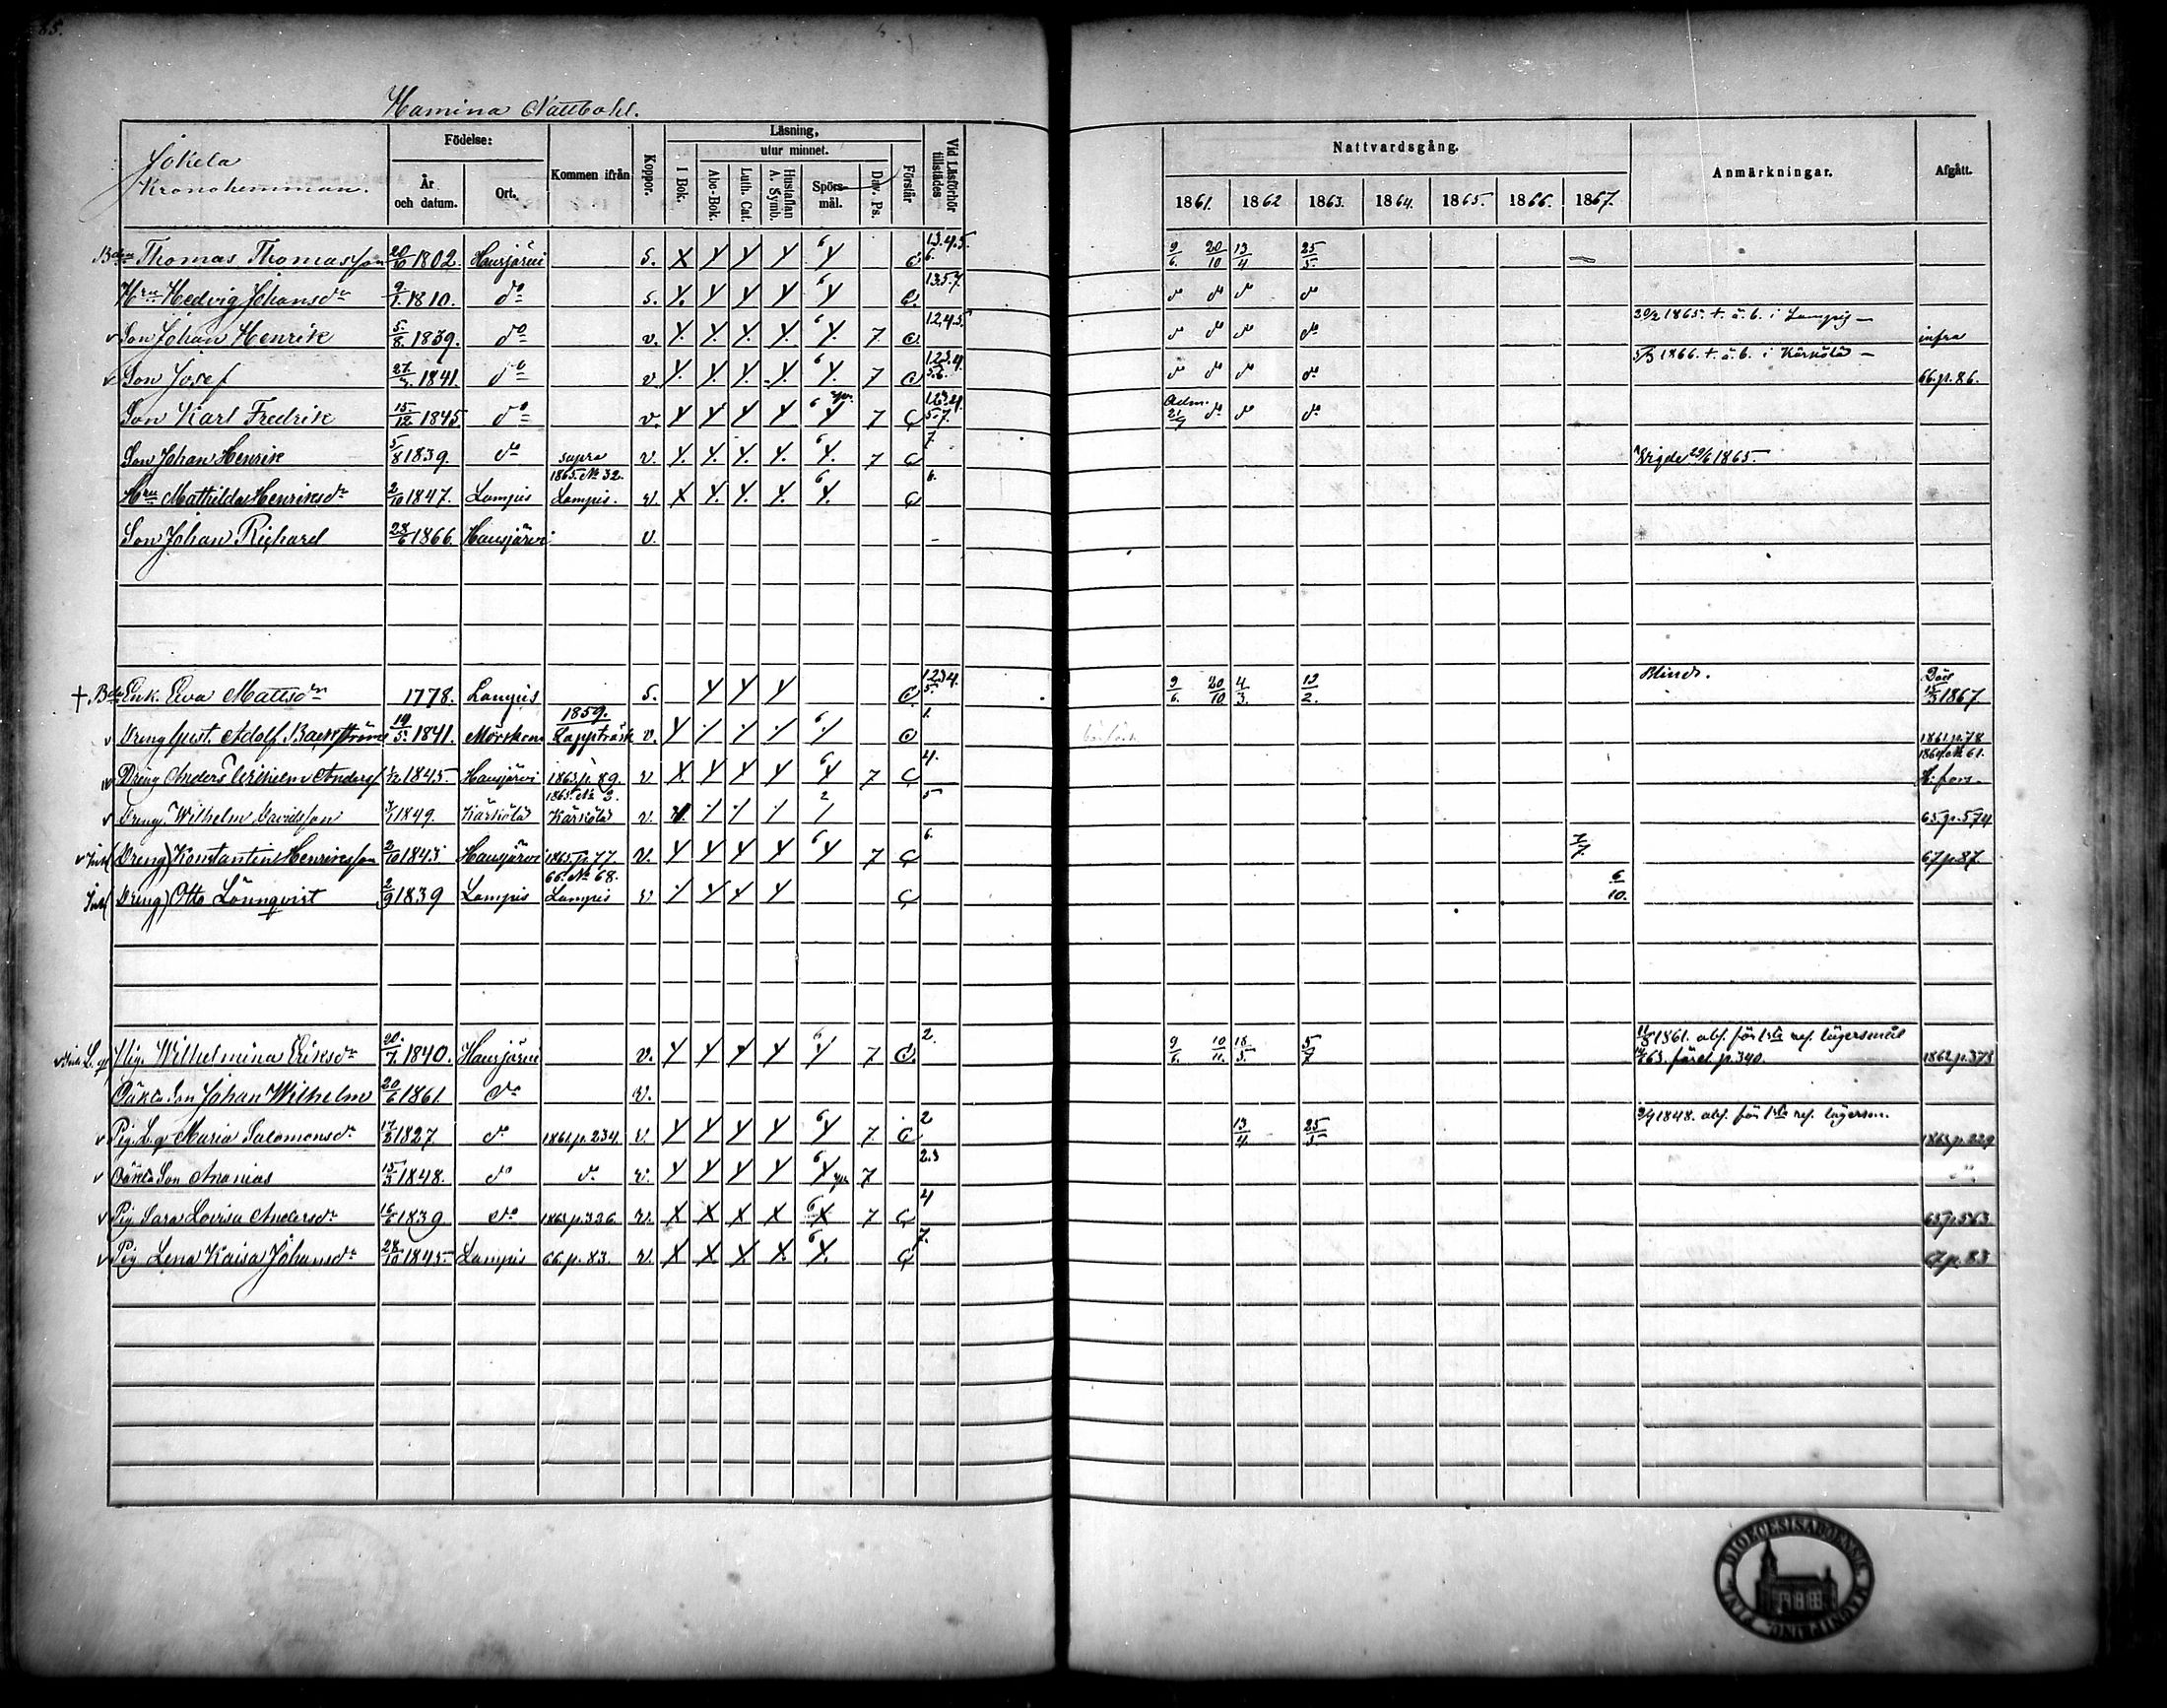 85.
Hamina Nattbohl.
Jokela
Kronohemman.
Födelse:
År och datum.
Ort.
Kommen ifrån
Koppor.
Läsning,
utur minnet.
I Bok.
Abc-Bok.
Luth. Cat.
Hustaflan A. Symb.
Spörs-mål.
Dav. Ps.
Förstår
Vid Läsförhör tillstädes
Nattvardsgång.
1861. 1862 1863. 1864. 1865. 1866. 1867.
Anmärkningar.
Afgått.
Thomas Thomasson 20/10 1802. Hausjärvi s. 6 1.3.4.5. 6. 9/6. 20/10 13/4 25/5.
Hru Hedvig Johansdr 9/1. 1810. do s. 6 1.3.5.7. do do do do
v Son Johan Henrik 5/8. 1839. do v. 6 7 1.2.4.5. do do do do 20/2 1865. t. ä. b. i Lampis infra
v Son Josef 1841. do v. 6 7 1.2.3.4. 5.6. do do do do 1866. t. ä. b. i Kärkölä 66. p. 86.
Son Karl Fredrik 15/12 1845 do v. 6 7 1.2.3.4. 5.7. Adm. do do do
Son Johan Henrik 5/8 1839. do supra v. 6 7 7. Vigde 29/6 1865.
Hru Mathilda Henriksdr 2/10 1847. Lampis 1865. No 32. Lampis. v. 6 6.
Son Johan Richard 28/6 1866 Hausjärvi v.
† Enk. Eva Mattsdr 1778. Lampis s. 1.2.3.4. 5. 9/6. 20/10 4/3. 12/2. Blind. Död 1867.
v Dreng Gust. Adolf Backström 19/5. 1841. Mörskom 1859. Lappträsk v. 6 1. 1861. p. 78
Dreng Anders Wilhelm Andersf 1845. Hausjärvi 1863. p. 89. v 6 7 4. 1864. No 61. H:fors.
v Dreng Wilhelm Davidsson 1849. Kärkölä 1865. No 2. Kärkölä v. 2 5 65. p. 574
v Dreng) Konstantin Henriksson 2/10 1843 Hausjärvi 1865. p. 77. v. 6 7 6. 7/7. 67 p. 87
Dreng) Otto Lönnqvist 2/9 1839 Lampis 66. No 68. Lampis v 6/10.
Wilhelmina Eriksdr 20./7. 1840. Hausjärvi v. 6 7 2. 9/6. 10/11. 18/5. 5/7 1861. abs. för 1sta res. lägersmål 63. förel. p. 340. 1862. p. 373
Oäkta Son Johan Wilhelm 20/6 1861. do v.
v Pig. L. q. Maria Salomonsdr 17/8 1827 do 1861. p. 234. v. 6 7. 2 13/4. 25/5. 1848. abs. för 1sta res. lägersm. 1863. p. 229
v Oäkta Son Ananias 15/3 1848. do do v. 6 7 2.3 "
v Pig. Sara Lovisa Andersdr 16/6 1839 do 1863. p. 326. v. 6 7 4 65. p. 563
v Pig Lena Kaisa Johansdr 28/10 1845. Lampis 66. p. 83. v. 6 7. 67 p. 83